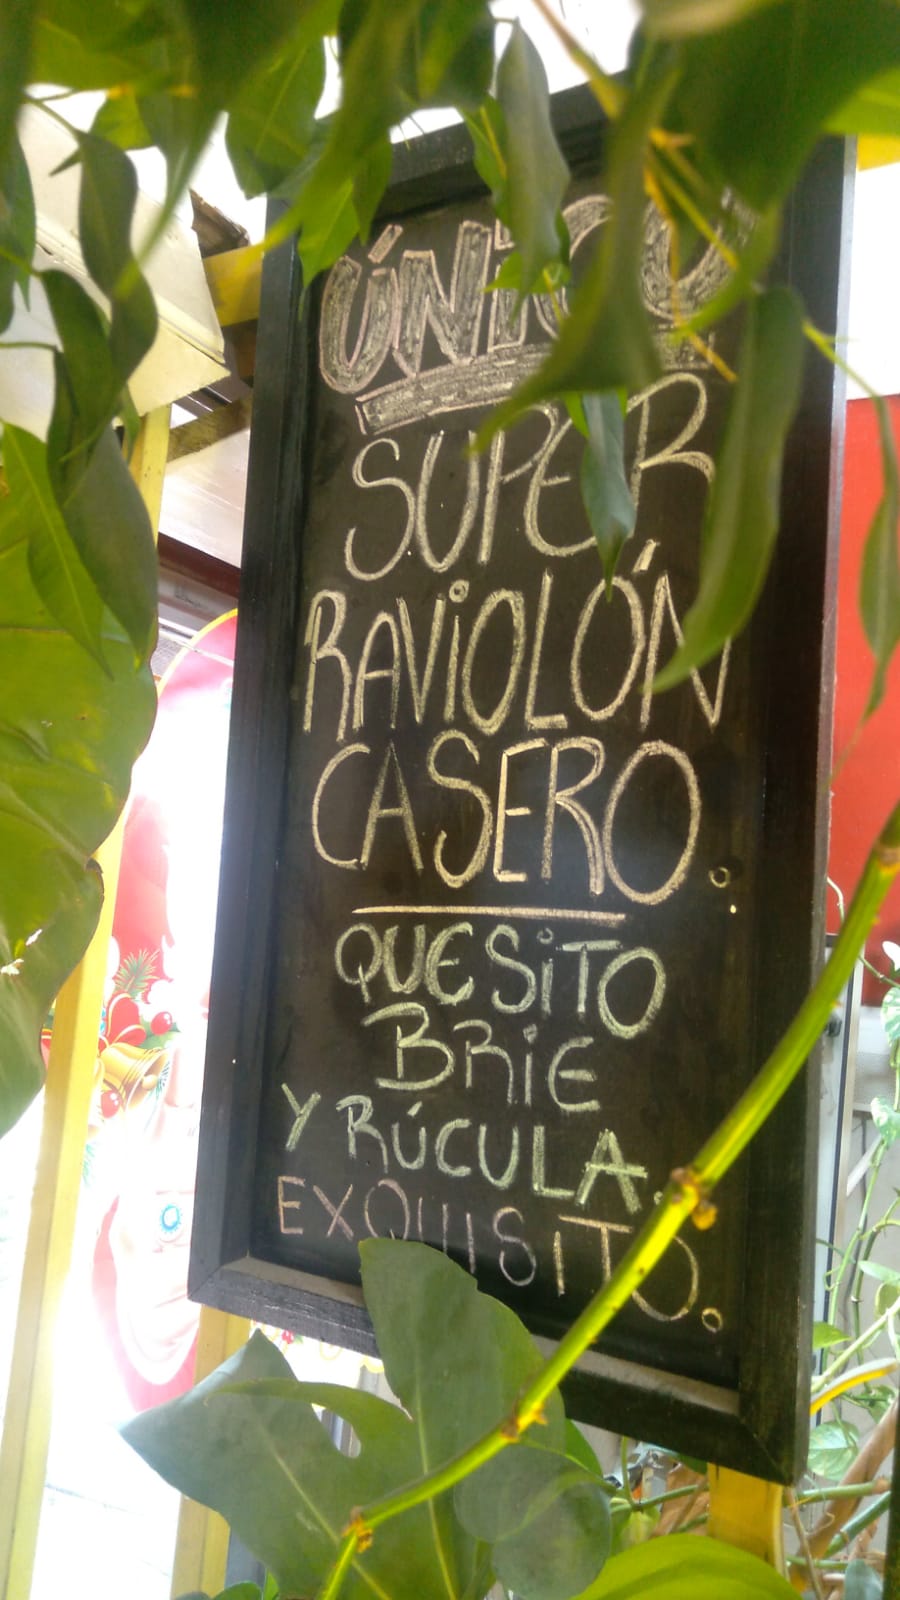 ÚNiCO
SUPER
RAViOLÓN
CASERO.
QUESiTO
BRiE
Y RÚCULA.
EXQUISITO.